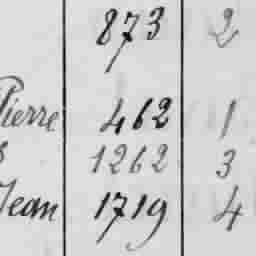 873 2
Pierre 462 1
1262 3
Jean 1719 4